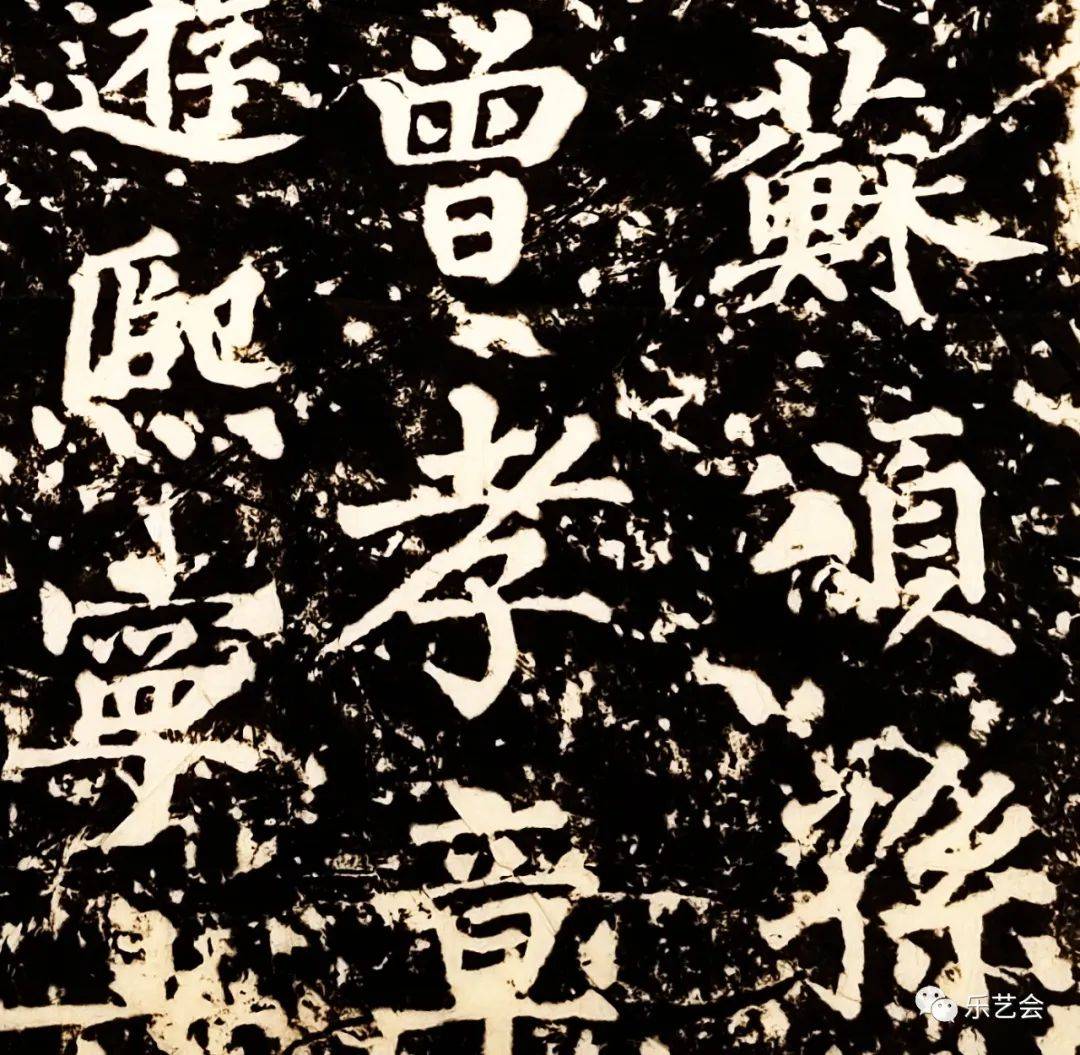 蘇頌孫
曾孝章
遊熙寧
乐艺会